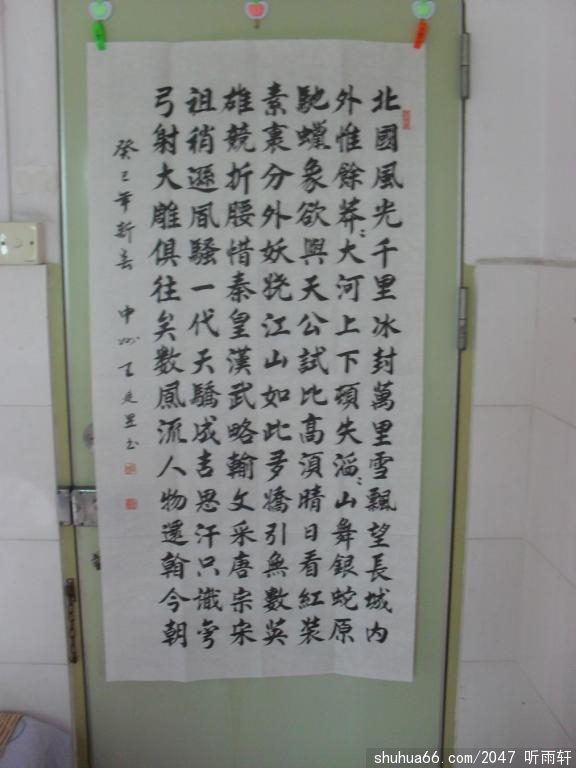 北國風光千里冰封萬里雪飄望長城内
外惟餘莽〻大河上下頓失滔〻山舞銀蛇原
馳蠟象欲與天公試比高須晴日看紅裝
素裹分外妖娆江山如此多嬌引無數英
雄競折腰惜秦皇漢武略翰文采唐宗宋
祖稍遜風騷一代天驕成吉思汗只識彎
弓射大雕俱往矣數風流人物還翰今朝
癸巳年新春 中州王廷书
shuhua66.com/2047 听雨轩